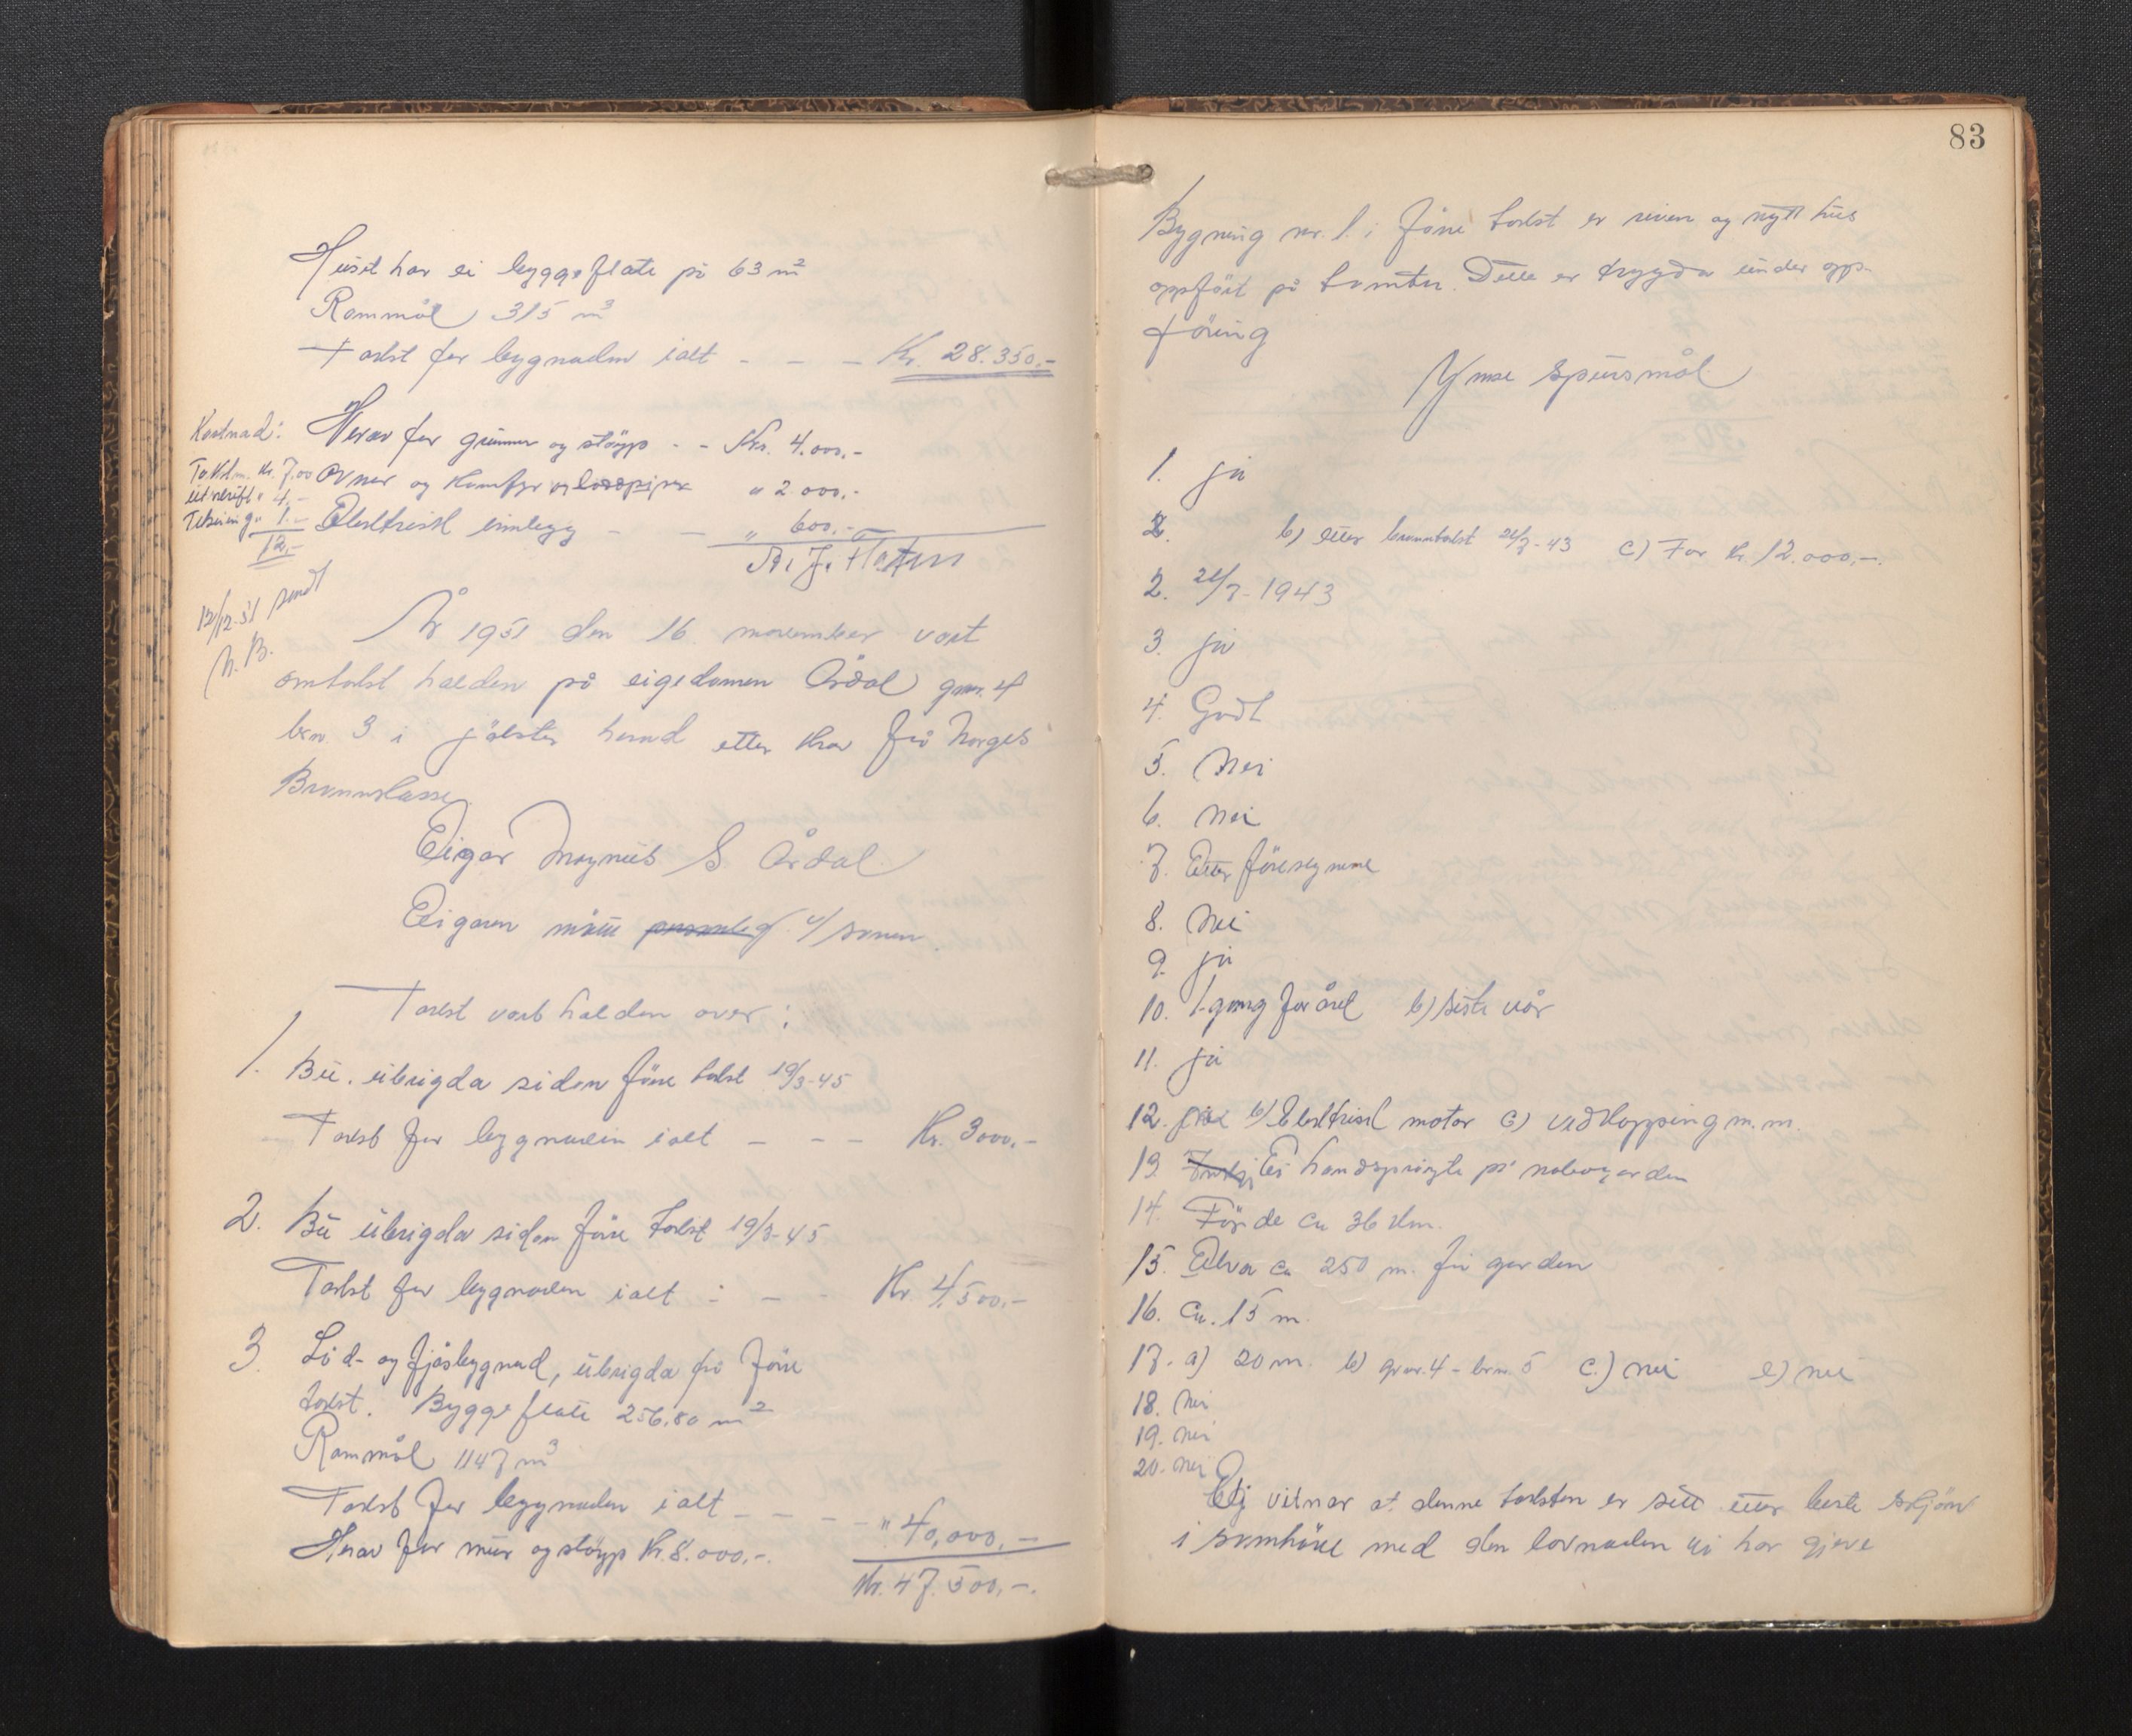 Huset har ei byggeflate på 63 m²
Rommål 315 m³
Takst for bygnaden ialt - - - Kr. 28.350.-
Kostnad:
Takstm. kr. 7.00
utskrift " 4.-
Tekning " 1.-
12.-
Herav for grunnmur og støyp - - Kr. 4.000.-
Ovner og komfyr og " 2.000.-
Elektrisk innlegg - - " 600.-
A. J. Flaten
12/12-51 sendt
N.B.
År 1951 den 16 november vart
omtakst halden på eigedomen Årdal gnr. 4
brn. 3 i Jølster herad etter krav frå Norges
Brannkasse.
Eigar Magnus S. Årdal.
Eigaren møtte personleg v/ sonen.
Takst vart halden over:
1. Bu. ubrigda siden føre takst 19/3-45
Takst for bygnaden ialt - - - Kr. 3000.-
2. Bu ubrigda siden føre takst 19/3-45
Takst for bygnaden ialt - - - Kr 4.500.-
3. Lø d- og fjøsbygnad, ubrigda frå føre
takst. Byggeflate 256,80 m²
Rommål 1147 m³
Takst for bygnaden ialt - - - - " 40,000.-
Herav for mur og støyp Kr. 8.000,-.
Kr. 47.500.-.
83
Bygning nr. 1. i føre takst er riven og nytt hus
oppført på tomten. Dette er trygda under opp-
føring
Ymse spursmål
1. ja
2. b) etter branntakst 21/7-43 c) For kr. 12.000,-.
2. 21/7-1943
3. ja
4. Godt
5. Nei
6. Nei
7. Etter føresegnene
8. Nei
9. ja
10. 1. gang for året b) siste vår
11. ja
12. b) Elektrisk motor c) vedkapping m.m.
13. Ei handsprøyte på nabogarden
14. Førde ca 36 km.
15. Elva ca 250 m. frå garden
16. Ca. 15 m.
17. a) 20 m. b) gnr. 4 - brn. 5 c.) nei e) nei
18. Nei
19. Nei
20. Nei
Eg vitnar at denne taksten er sett etter beste skjøn
i samhøve med den lovnaden vi har gjeve